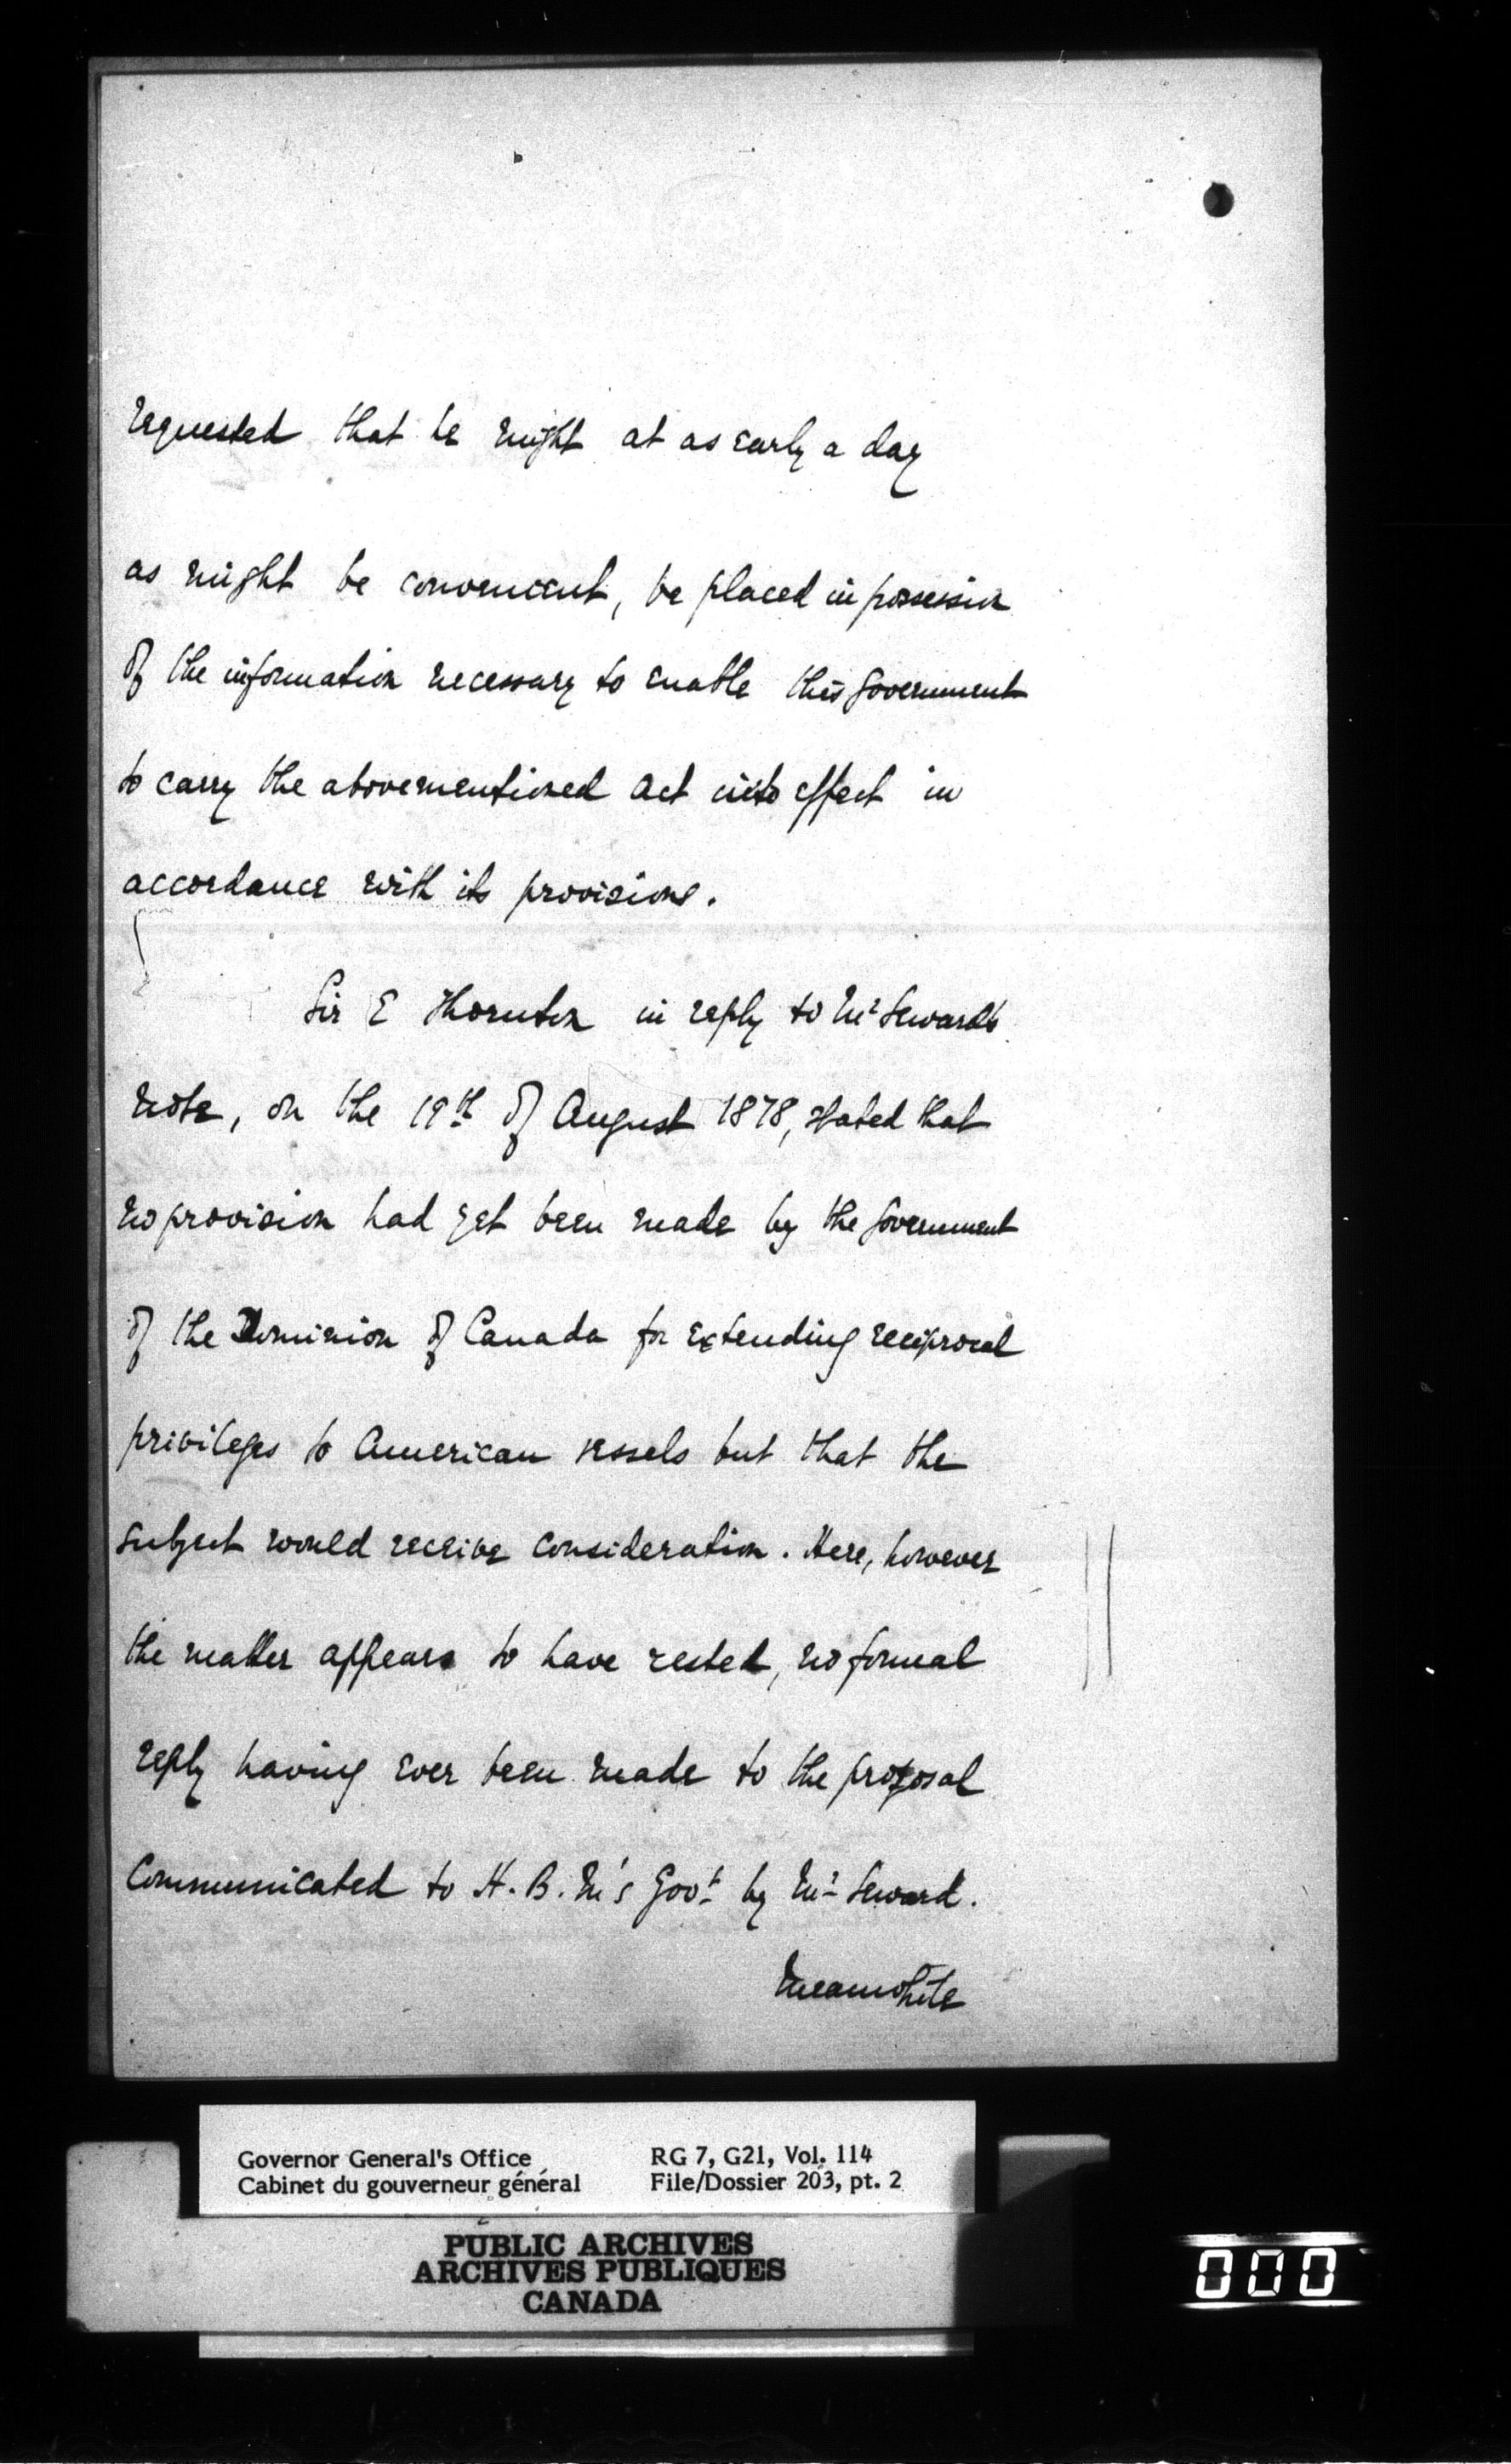 requested that he might at as early a day
as might be convenient, be placed in possession
of the information necessary to enable this Government
to carry the abovementioned Act into effect in
accordance with its provisions.
Sir E Thornton in reply to Mr Seward's
note, on the 19th of August 1878, stated that
no provision had yet been made by the Government
of the Dominion of Canada for extending reciprocal
privileges to American vessels but that the
subject would receive consideration. Here, however
the matter appears to have rested, no formal
reply having ever been made to the proposal
communicated to H. B. M's Govt by Mr Seward.
Meanwhile
Governor General's Office RG 7, G21, Vol. 114
Cabinet du gouverneur général File/Dossier 203, pt. 2
PUBLIC ARCHIVES
ARCHIVES PUBLIQUES
CANADA
000